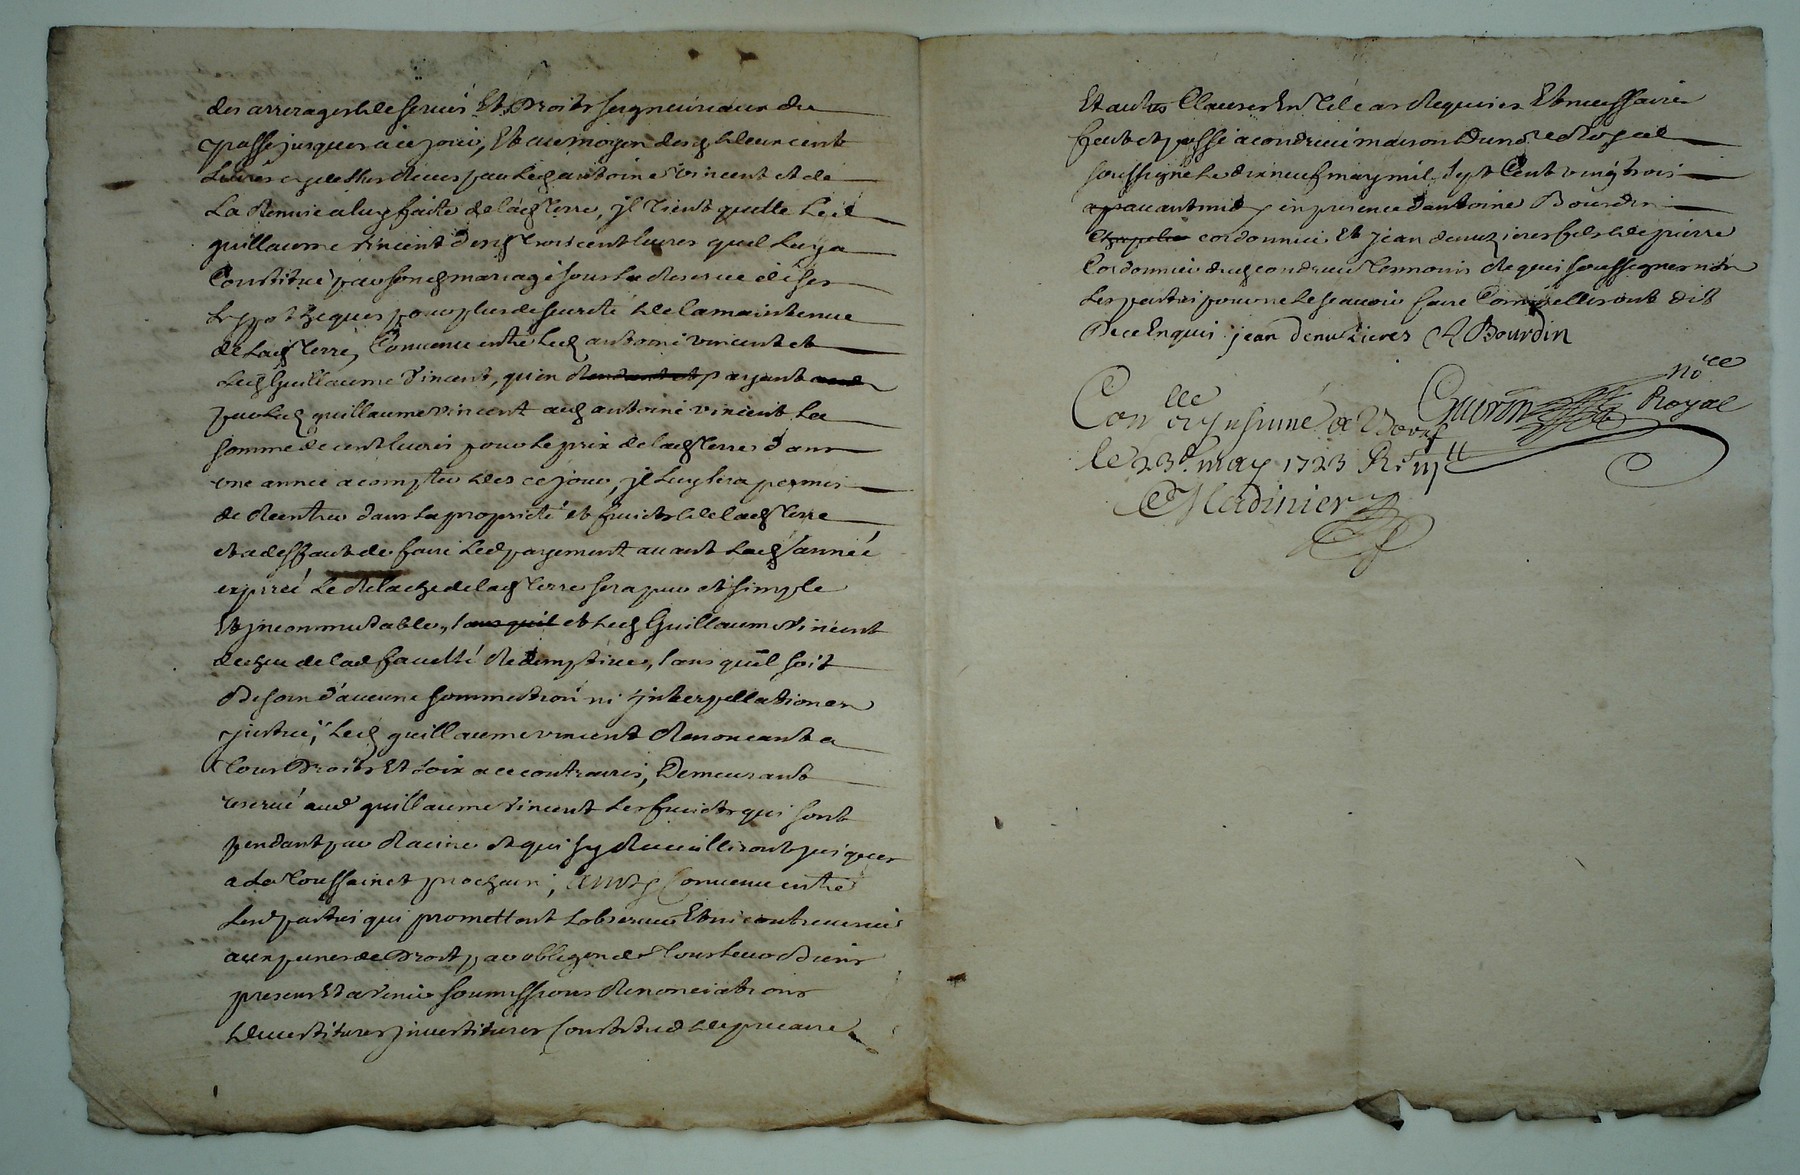 des arrerages de servis Et Droits seigneuriaux du
passé jusques a ce jour, Et au moyen desd deux cent
Livres cy dessus Reçues par Led antoine Vincent et de
La Remise a luy faite de lad Terre, jl Tient quitte Led
guillaume vincent desd trois cent livres quil Luy a
Constitué par son mariage sous La Reserve de ses
hypotheques pour plus de seureté de la maintenue
de Lad Terre, Convenu entre Led antoine vincent et
Led Guillaume Vincent, qu'en rendant et payant aud
par Led guillaume vincent aud antoine vincent La
somme de cent livres pour Le prix de lad Terre dans
une année a compter des ce jour, jl Luy sera permis
de Rentrer dans La proprieté et fruicts de lad Terre
et a deffaut de faire Led payement avant Lad année
expireé Le Relache de lad Terre sera pur et simple
Et jncommutable, sans quil et Led Guillaume Vincent
decheu de lad faculté Redemptive, sans quil soit
Besoin d'aucune sommation ni jnterpellation en
justice, Led guillaume vincent Renonceant a
Tous Droits Et Loix a ce contraires, Demeurant
reservé aud guillaume Vincent Les fruicts qui sont
pendant par Racines et qui sy Recueilliront jusques
a La Toussainct prochain, Convenu entre
Lesd parties qui promettent Lobserver Et ni contrevenir
aux peines de Droit par obligaon de Tous Leurs Biens
presens Et a Venir soumissions Renonciations
Devestitures jnvestitures Constitue de precaire
Et autres Clauses En Tel cas Requises Et necessaires
fait et passé a condrieu maison Du no.re Royal
soussigné Le dix neuf may mil sept Cent vingt trois
apr avant midy en presence d'antoine Bourdin
cordonnier Et jean denuzieres fils de pierre
Cordonnier dud condrieu Temoins Requis soussignes non
Les parties pour ne Le scavoir faire Comme elles ont dit
De ce Enquis jean denuzieres A Bourdin
Con.lle et jnsinué a
Guiron no.re Royal
le 23.e may 1723 R.
Madinier